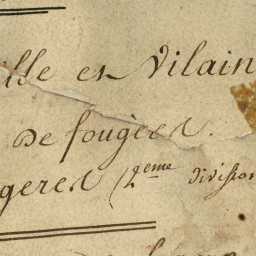 ille et Vilain
De fougères.
geres (2eme division